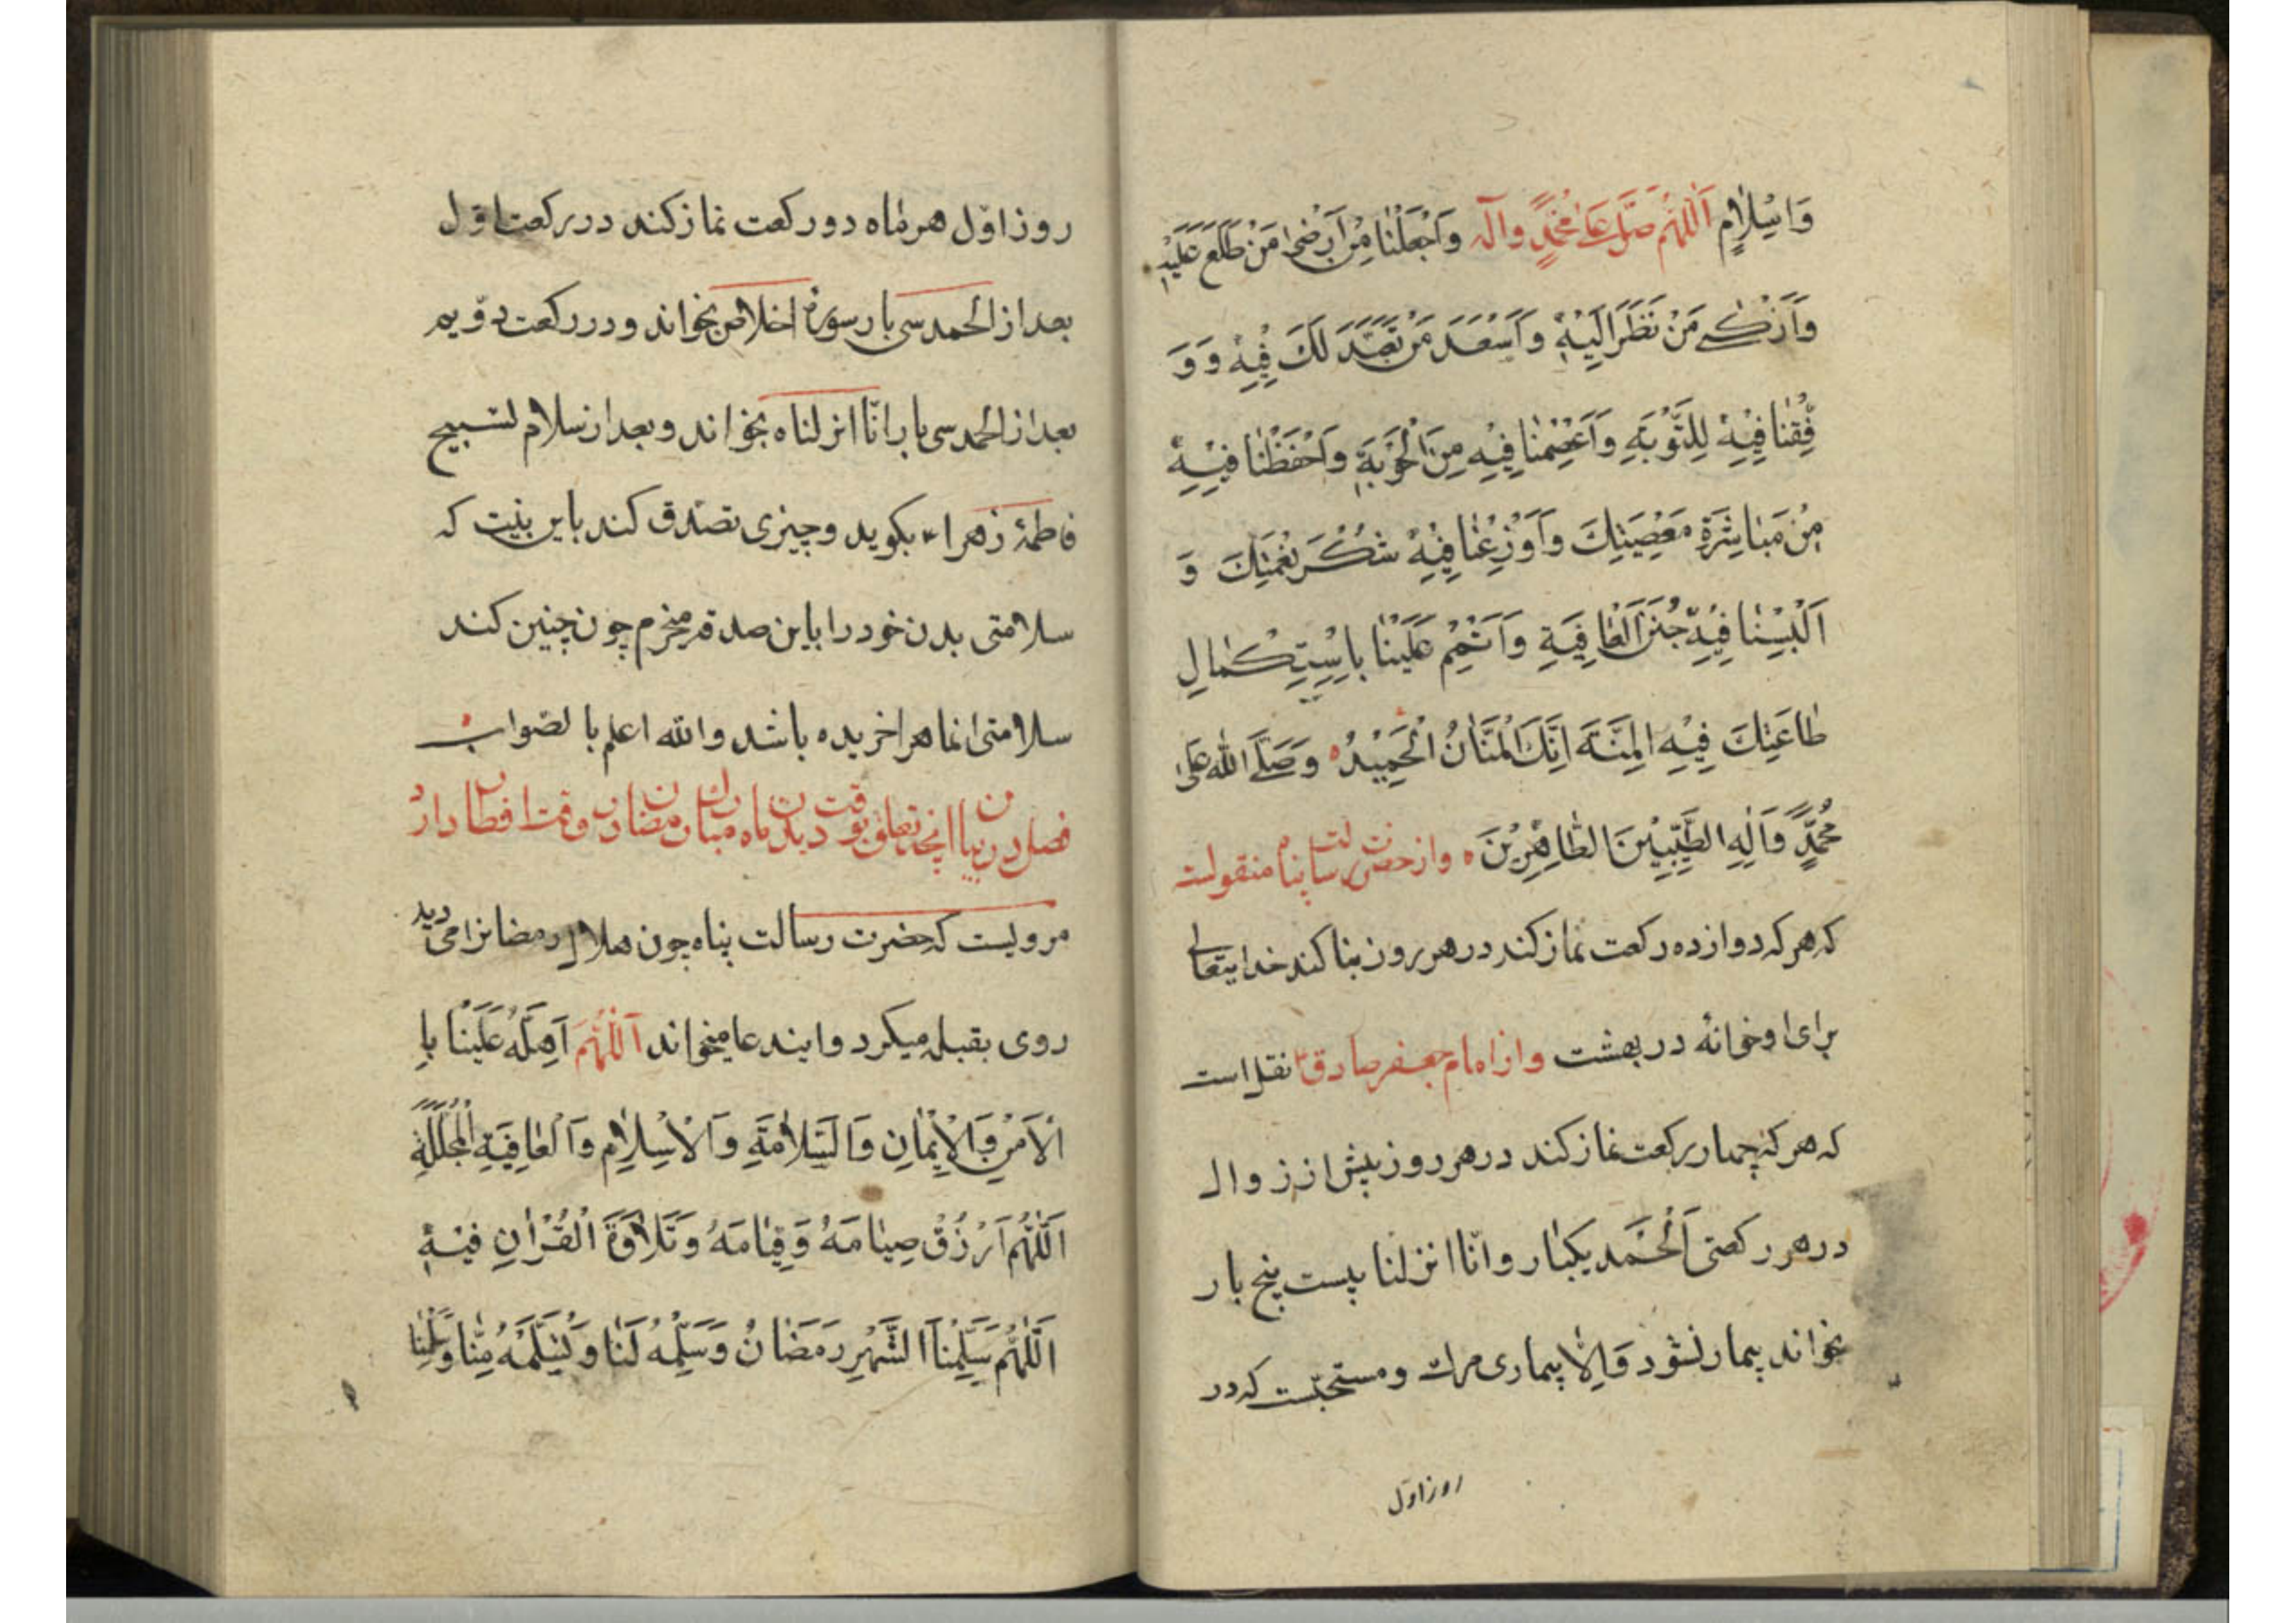 وَاِسْلٰامٍ اَللّٰهُمَّ صَلِّ عَلٰى مُحَمَّدٍ وَآلِهِ وَاَجْعَلْنٰا مِنْ اَرْضٰى مَنْ طَلَعَ عَلَيْهِ
وَاَزْكٰى مَنْ نَظَرَ اِلَيْهِ وَاَسْعَدَ مَنْ تَعَبَّدَ لَكَ فِيْهِ وَ وَ
فِّقْنٰا فِيْهِ لِلتَّوْبَةِ وَاَعْصِمْنٰا فِيْهِ مِنَ الْحَوْبَةِ وَاَحْفَظْنٰا فِيْهِ
مِنْ مُبٰاشَرَةِ مَعْصِيَتِكَ وَاَوْزِعْنٰا فِيْهِ شُكْرَ نِعْمَتِكَ وَ
اَلْبِسْنٰا فِيْهِ جُنَنَ الْعٰافِيَةِ وَاَتْمِمْ عَلَيْنٰا بِاسْتِكْمٰالِ
طٰاعَتِكَ فِيْهِ الْمِنَّةَ اِنَّكَ الْمَنّٰانُ الْحَمِيْدُ وَصَلَّى اللّٰهُ عَلٰى
مُحَمَّدٍ وَاٰلِهِ الطَّيِّبِيْنَ الطّٰاهِرِيْنَ ه واز حضرت رسالت پناه منقولست
که هر که دوازده رکعت نماز کند در هر روز بنا کند خدایتعالی
برای او خانهٔ در بهشت واز امام جعفر صادق ع نقل است
که هر که چهار رکعت نماز کند در هر روز پیش از زوال
در هر رکعتی اَلْحَمد یکبار و انّا انزلنا بیست پنج بار
بخواند بیمار نشود وَاِلّا بیماری مرك و مستحبّست که در
روز اول
روز اوّل هر ماه دو رکعت نماز کند در رکعت اوّل
بعد از الحمد سی بار سورهٔ اخلاص بخواند و در رکعت دوّیم
بعد از الحمد سی بار انّا انزلناه بخواند و بعد از سلام تسبیح
فاطمهٔ زهرا ع بکوید و چیزی تصدّق کند باین نیت که
سلامتی بدن خود را باین صدقه میخرم چون چنین کند
سلامتی انماهرا خریده باشد والله اعلم بالصّواب
فصل در بیان انچه تعلق بوقت دیدن ماه مبارك رمضان و وقت افطار دارد
مرویست که حضرت رسالت پناه چون هلال رمضانرا می دید
روی بقبله میکرد و ایندعا میخواند اَللّٰهُمَّ اَهِلَّهُ عَلَيْنٰا بِا
الْاَمْنِ وَالْاِيْمٰانِ وَالسَّلاٰمَةِ وَالْاِسْلاٰمِ وَالْعٰافِيَةِ الْمُجَلَّلَةِ
اَللّٰهُمَّ اَرْزُقْ صِيٰامَهُ وَقِيٰامَهُ وَتَلاٰوَةَ الْقُرْاٰنِ فِيْهِ
اَللّٰهُمَّ سَلِّمْنٰا الشَّهْرِ رَمَضٰانُ وَسَلِّمْهُ لَنٰا وَتَسَلَّمْهُ مِنّٰا وَسَلِّمْنٰا